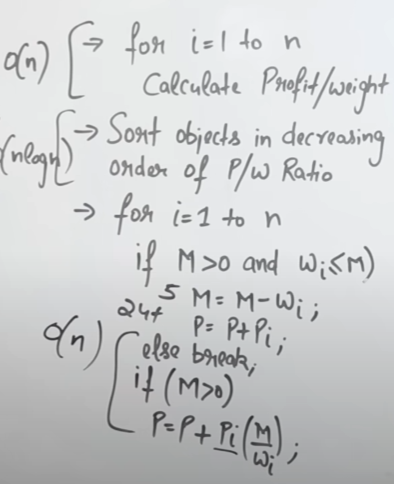 O(n) → for i=1 to n
Calculate Profit/weight
(nlogn) → Sort objects in decreasing
order of P/W Ratio
→ for i=1 to n
if M>0 and Wi≤M)
5 M=M-Wi;
24+ P=P+Pi;
O(n) else break;
if (M>0)
P=P+Pi(M/Wi);